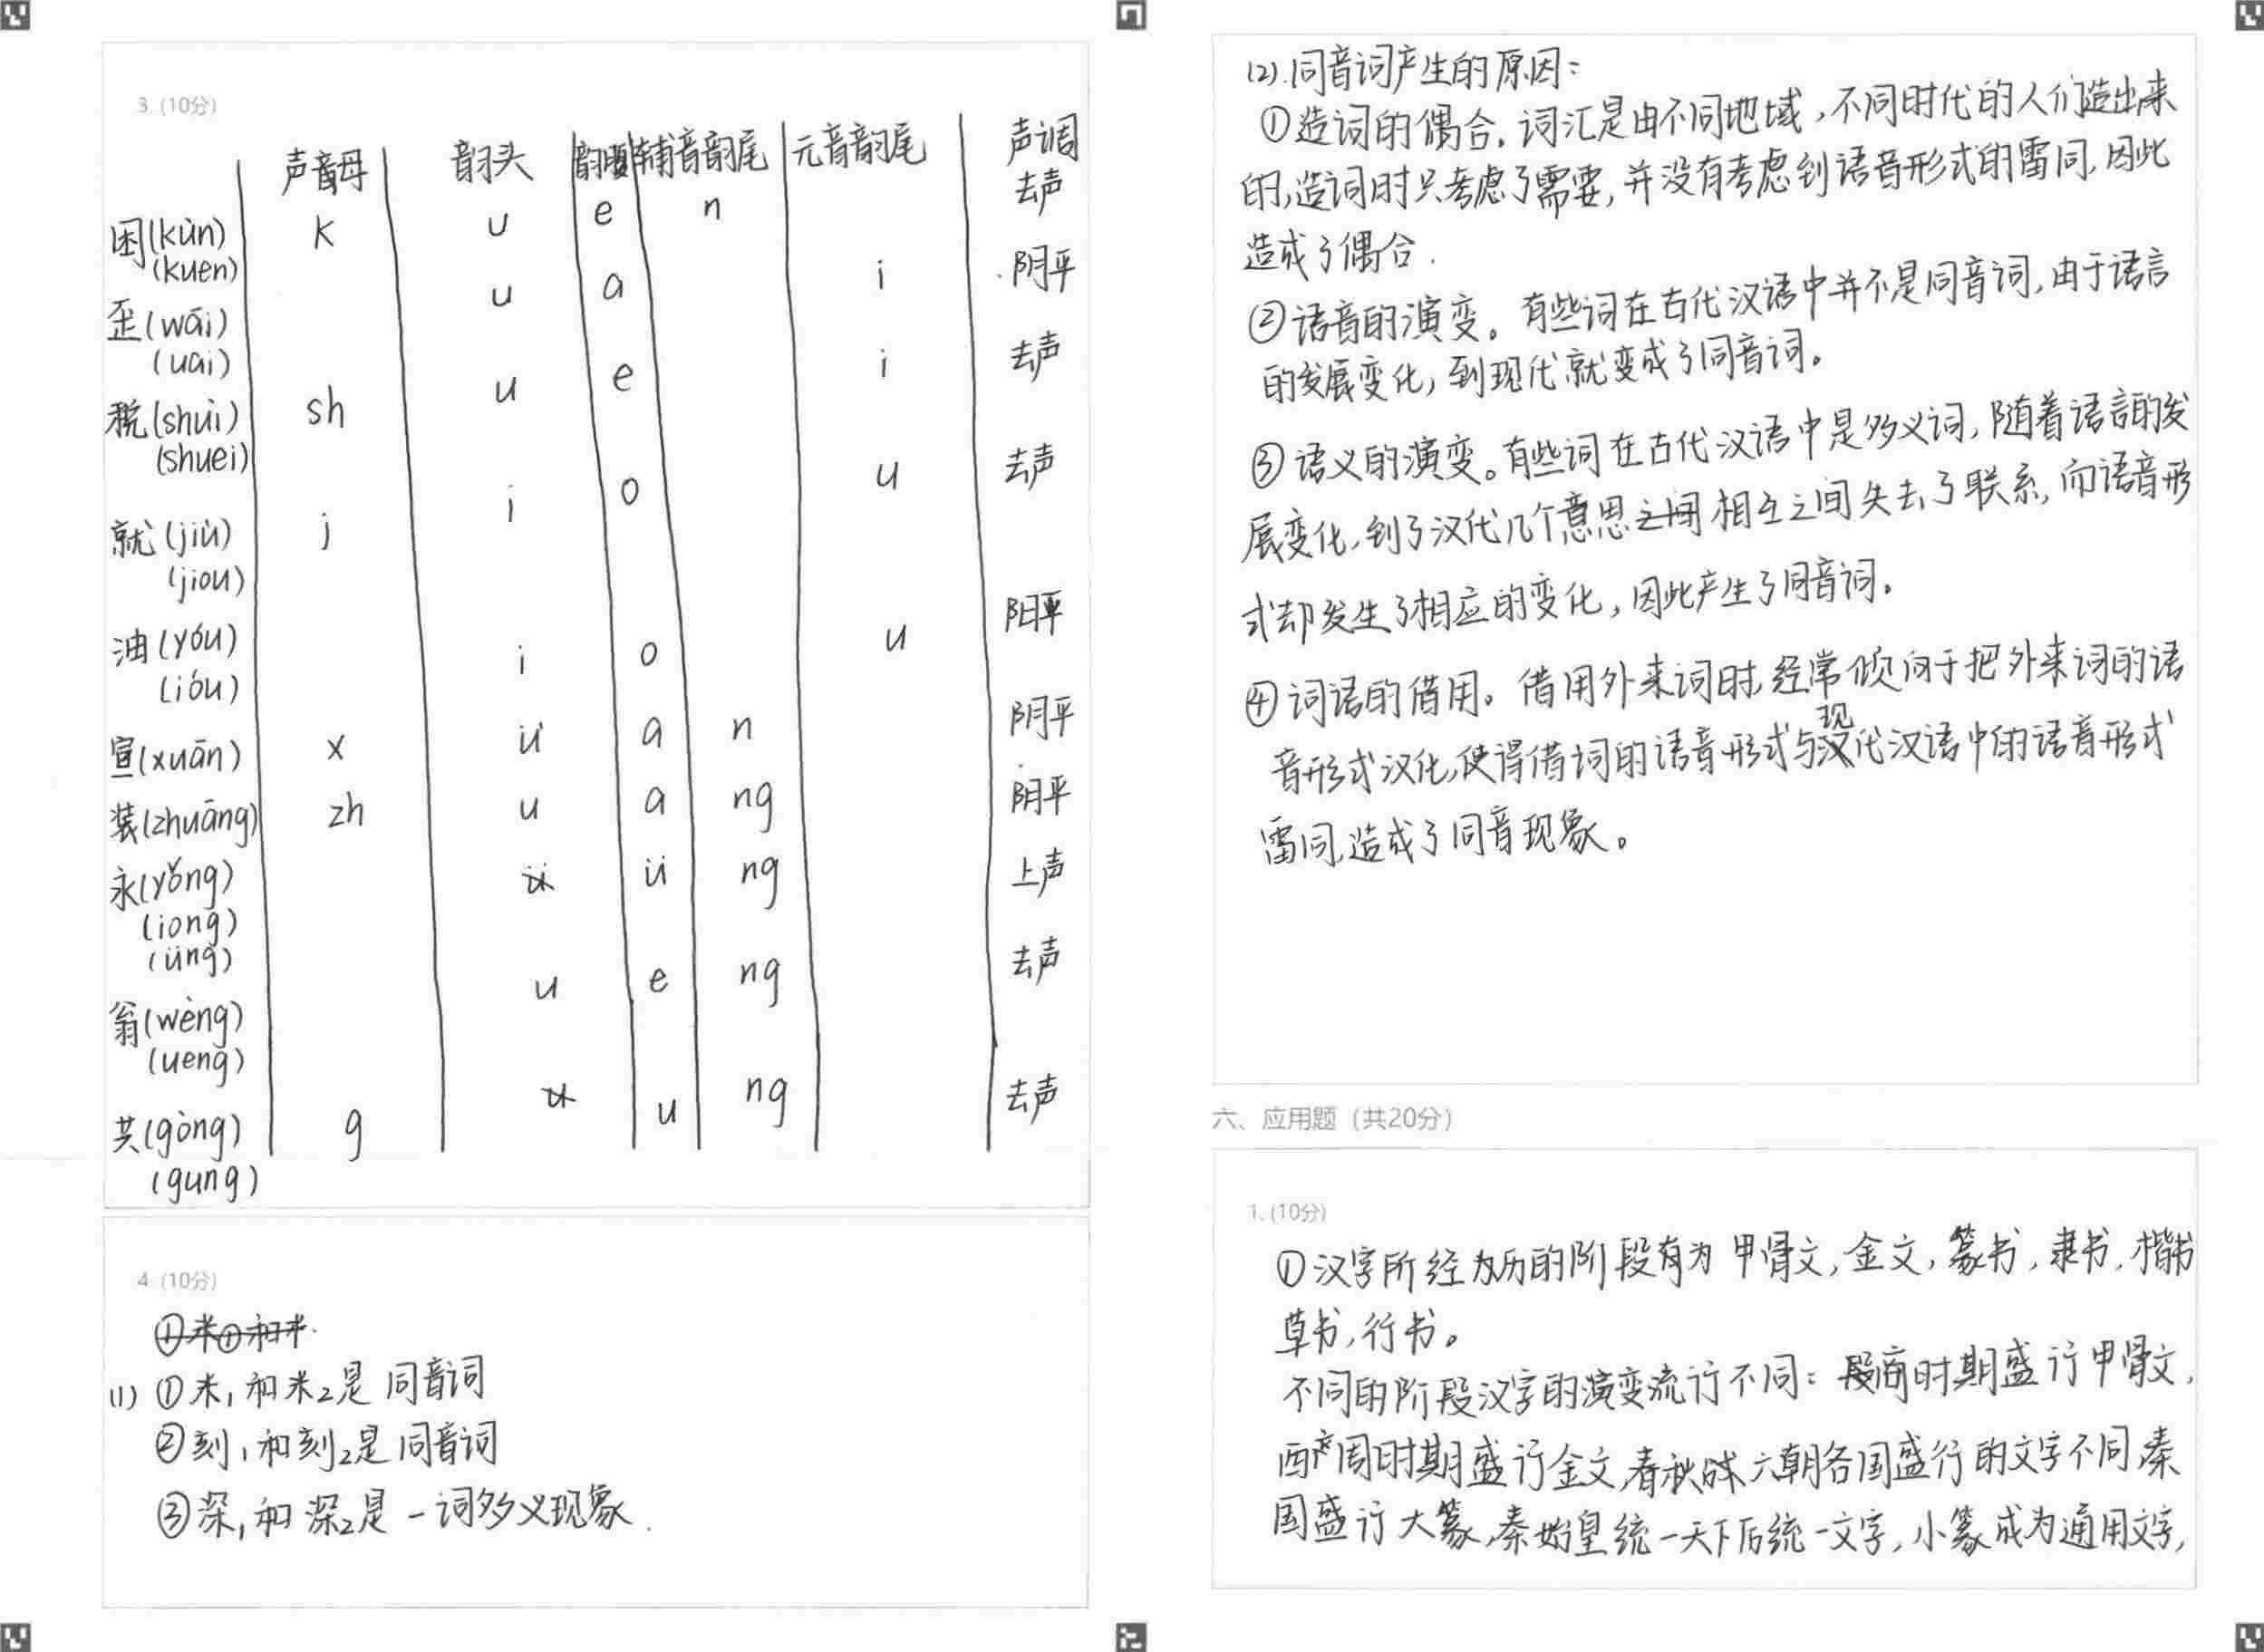 3. (10分)
声母 韵头 韵腹 辅音韵尾 元音韵尾 声调
困(kùn) k u e n 去声
(kuen)
歪(wāi) u a i 阴平
(uai)
税(shuì) sh u e i 去声
(shuei)
就(jiù) j i o u 去声
(jiou)
油(yóu) i o u 阳平
(ióu)
宣(xuān) x ü a n 阴平
装(zhuāng) zh u a ng 阴平
永(yǒng) ü ng 上声
(iong)
(üng)
翁(wèng) u e ng 去声
(ueng)
共(gòng) g u ng 去声
(gung)
4. (10分)
①米①和米.
(1) ①米₁和米₂是同音词
②刻₁和刻₂是同音词
③深₁和深₂是一词多义现象.
(2).同音词产生的原因:
①造词的偶合。词汇是由不同地域,不同时代的人们造出来
的,造词时只考虑了需要,并没有考虑到语音形式的雷同,因此
造成了偶合.
②语音的演变。有些词在古代汉语中并不是同音词,由于语言
的发展变化,到现代就变成了同音词。
③语义的演变。有些词在古代汉语中是多义词,随着语言的发
展变化,到了汉代几个意思之间相互之间失去了联系,而语音形
式却发生了相应的变化,因此产生了同音词。
④词语的借用。借用外来词时,经常倾向于把外来词的语
音形式汉化,使得借词的语音形式与现代汉语中的语音形式
雷同,造成了同音现象。
六、应用题(共20分)
1. (10分)
①汉字所经历的阶段有为甲骨文,金文,篆书,隶书,楷书
草书,行书。
不同的阶段汉字的演变流行不同:殷商时期盛行甲骨文,
西周时期盛行金文,春秋六朝各国盛行的文字不同,秦
国盛行大篆,秦始皇统一天下后统一文字,小篆成为通用文字,